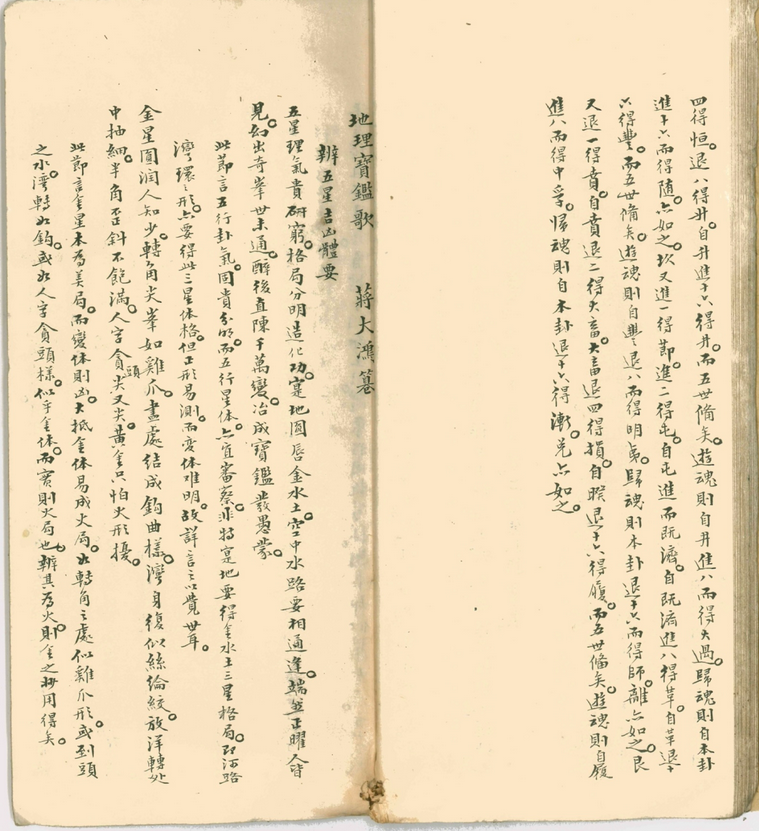 四得恒。退八得升。自升進十六得井。而五世備矣。遊魂則自井進八而得大過。歸魂則自本卦
進十六而得隨。六如之。坎又進一得節。進二得屯。自屯進而既濟。自既濟進八得革。自革退十
六得豐。而五世備矣。遊魂則自豐退八而得明夷。歸魂則本卦退十六而得師。離六如之。艮
又退一得賁。自賁退二得大畜。大畜退四得損。自睽退十六得履。而五世備矣。遊魂則自履
進八而得中孚。歸魂則自本卦退十六得漸。兌六如之。
地理寶鑑歌 蔣大鴻篹
辨五星吉凶體要
五星理氣貴研窮。格局分明造化功。寔地圓唇金水土。空中水路要相通逢。端然正曜人皆
見。幻出奇峯世未通。醉後直陳千萬變。冶成寶鑑啟愚蒙。
此節言五行卦氣。固貴分明。而五行星体。六宜審察。非特寔地要得金水土三星格局。即河路
灣環之形。六要得此三星体格。但正形易測。而变体难明。故詳言之以覺世耳。
金星圓潤人知少。轉角尖峯如雞爪。盡處結成鈎曲樣。灣身復似絲綸絞。放洋轉处
中抽細。半角歪斜不飽滿。人字貪頭尖又尖。黃金只怕火形擾。
此節言金星本為美局。而變体則凶。大抵金体易成火局。如轉角之處似雞爪形。或到頭
之水。灣轉如鈎。或如人字貪頭樣。似乎金体。而實則火局也。辨其為火。則金之妙用得矣。